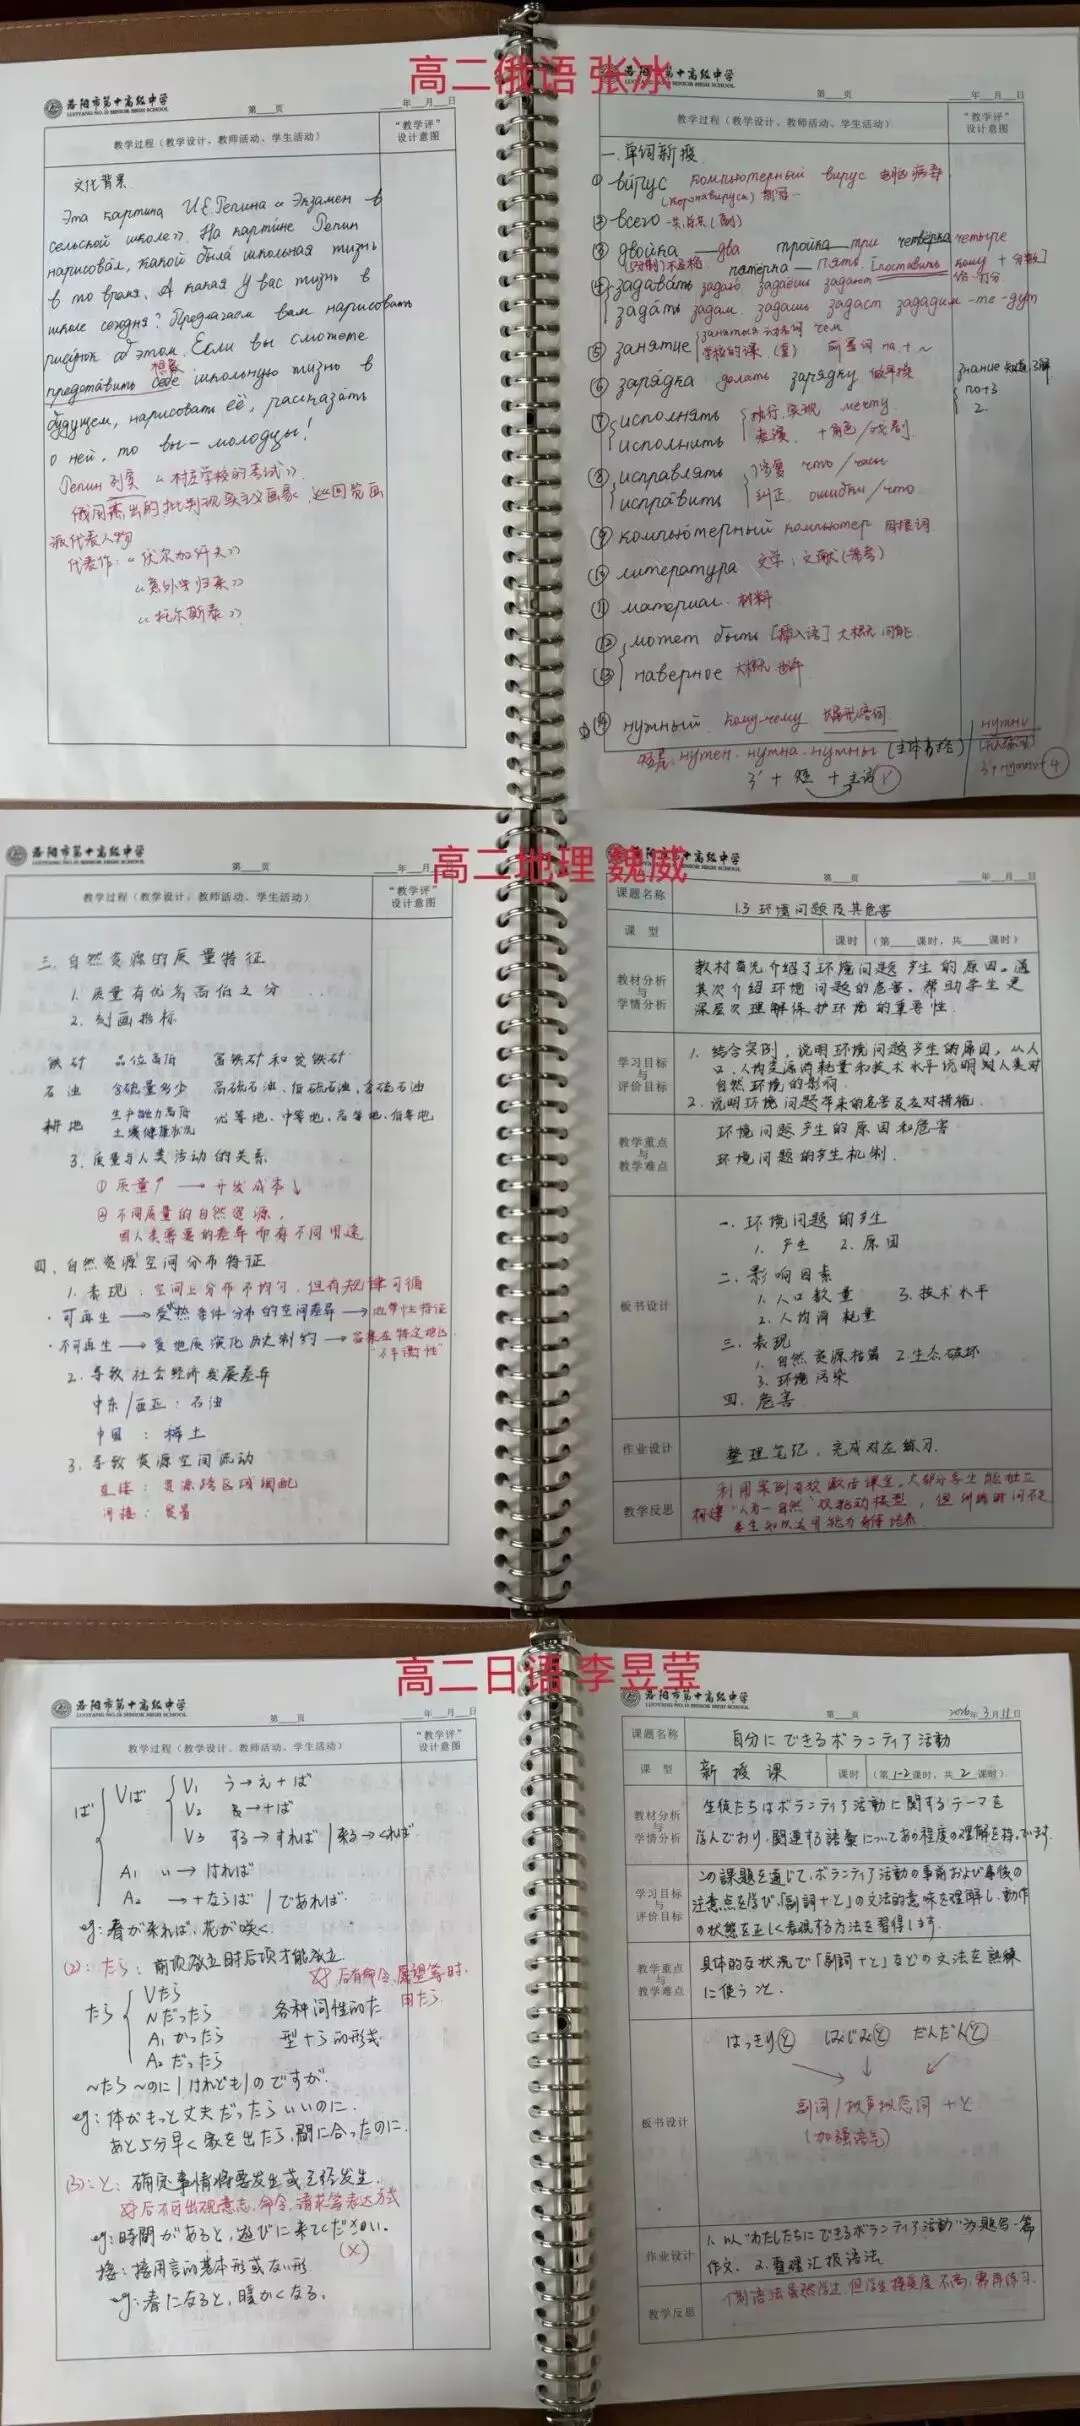 高二俄语 张冰
洛阳市第十高级中学
LUOYANG NO.10 SENIOR HIGH SCHOOL
第 页
年 月 日
教学过程（教学设计、教师活动、学生活动）
“教学评”
设计意图
文化背景
Эта картина И.Е.Репина «Экзамен в
сельской школе». На картине Репин
нарисовал, какой была школьная жизнь
в то время. А какая у вас жизнь в
школе сегодня? Предлагаем вам нарисовать
рисунок об этом. Если вы сможете
想象
представить себе школьную жизнь в
будущем, нарисовать её, рассказать
о ней, то вы — молодцы!
Репин 列宾 《村庄学校的考试》
俄国杰出的批判现实主义画家
派代表人物
代表作：《伏尔加纤夫》
《意外归来》
《托尔斯泰》
洛阳市第十高级中学
第 页
年 月 日
教学过程（教学设计、教师活动、学生活动）
“教学评”
设计意图
一.单词新授
① вирус компьютерный вирус 电脑病毒
② всего
③ двойка — два тройка — три четвёрка четыре
пятерка — пять [поставить кому + 分数]
④ задавать задаю задаёшь задают
задать задам. задашь задаст зададим -те -дут
⑤ занятие
学校的课.(复) 前置词 на. + ~
⑥ зарядка делать зарядку 做早操
знание
по+3
2.
⑦ исполнять 执行.实现 мечту.
исполнить 表演. + 角色/戏剧.
⑧ исправлять 修复 что/часы
исправить 纠正. ошибки/что
⑨ компьютерный компьютер 同根词
⑩ литература 文学；文献(参考)
⑪ материал. 材料
⑫ может быть [插入语] 大概, 可能
⑬ наверное 大概
⑭ нужный. кому-чему
短尾: нужен. нужна. нужны (主体为3格)
3 + 短 + 主语①
нужно
高二地理 魏威
洛阳市第十高级中学
LUOYANG NO.10 SENIOR HIGH SCHOOL
第 页
年 月 日
教学过程（教学设计、教师活动、学生活动）
“教学评”
设计意图
三.自然资源的质量特征
1.质量有优劣高低之分
2.刻画指标
铁矿 品位高低 富铁矿和贫铁矿
石油 含硫量多少 高硫石油、低硫石油、含硫石油
耕地 生产能力高低 优等地、中等地、高等地、低等地
土壤健康状况
3.质量与人类活动的关系
① 质量↑ → 开发成本↓
② 不同质量的自然资源，
因人类需要的差异而有不同用途
四.自然资源空间分布特征
1.表现：空间上分布不均匀，但有规律可循
·可再生 → 受水热条件分布的空间差异 → 地带性特征
·不可再生 → 受地质演化历史制约 → 富集在特定地区
“不平衡性”
2.导致社会经济发展差异
中东/西亚：石油
中国：稀土
3.导致资源空间流动
直接：资源跨区域调配
间接：贸易
洛阳市第十高级中学
第 页
年 月 日
课题名称
1.3 环境问题及其危害
课 型
课时
（第 课时，共 课时）
教材分析
与
学情分析
教材首先介绍了环境问题产生的原因。通
其次介绍环境问题的危害。帮助学生更
深层次理解保护环境的重要性.
学习目标
与
评价目标
1.结合实例，说明环境问题产生的原因，从人
口、人均资源消耗量和技术水平说明对人类对
自然环境的影响.
2.说明环境问题带来的危害及应对措施.
教学重点
与
教学难点
环境问题产生的原因和危害
环境问题的产生机制.
板书设计
一.环境问题的产生
1.产生 2.原因
二.影响因素
1.人口数量 3.技术水平
2.人均消耗量
三.表现
1.自然资源枯竭 2.生态破坏
3.环境污染
四.危害
作业设计
整理笔记，完成对应练习.
教学反思
利用案例有效激活课堂，大部分学生能独立
构建“人为—自然”双驱动模型，但训练时间不足
高二日语 李昱莹
洛阳市第十高级中学
LUOYANG NO.10 SENIOR HIGH SCHOOL
第 页
年 月 日
教学过程（教学设计、教师活动、学生活动）
“教学评”
设计意图
ば Vば V₁ う→え+ば
V₂ る→+ば
V₃ する→すれば/来る→くれば
A₁ い→ければ
A₂ →+ならば/であれば
eg:春が来れば、花が咲く.
(2):たら:前项成立时后项才能成立.
后有命令、愿望等时.
用たら.
たら Vたら
Nだったら 各种词性的た
A₁かったら 型+ら的形式.
A₂だったら
~たら~のに/けれども/のですが.
eg:体がもっと丈夫だったらいいのに.
あと5分早く家を出たら,間に合ったのに.
(3):と:确定事情将要发生或已经发生.
后不可出现意志、命令、请求等表达方式
eg:時間があると,遊びに来てください.
(×)
接:接用言的基本形或ない形
eg:春になると,暖かくなる.
洛阳市第十高级中学
第 页
2026年3月11日
课题名称
自分にできるボランティア活動
课 型
新授课
课时
（第1-2课时，共2课时）
教材分析
与
学情分析
生徒たちはボランティア活動に関するテーマを
学んでおり.関連する語彙についてある程度の理解を持っています.
学习目标
与
评价目标
この課題を通じて、ボランティア活動の事前および事後の
注意点を学び、「副詞+と」の文法的意味を理解し、動作
の状態を正しく表現する方法を習得します.
教学重点
与
教学难点
具体的な状況で「副詞+と」などの文法を熟練
に使うこと.
板书设计
はっきりと しみじみと だんだんと
副词/拟声拟态词+と.
(加强语气)
作业设计
1.以“わたしたちにできるボランティア活動”为题写一篇
作文. 2.整理汇报语法
教学反思
但学生接受度不高,需再练习.